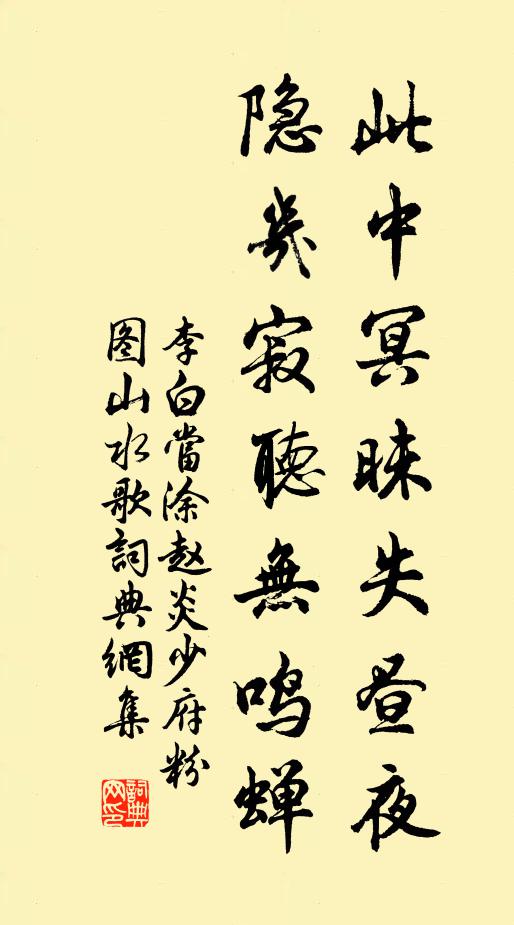 此中冥昧失昼夜
隐幾寂聽無鸣蝉
李白當涂赵炎少府粉
图山水歌詞典網集
詞典
网印